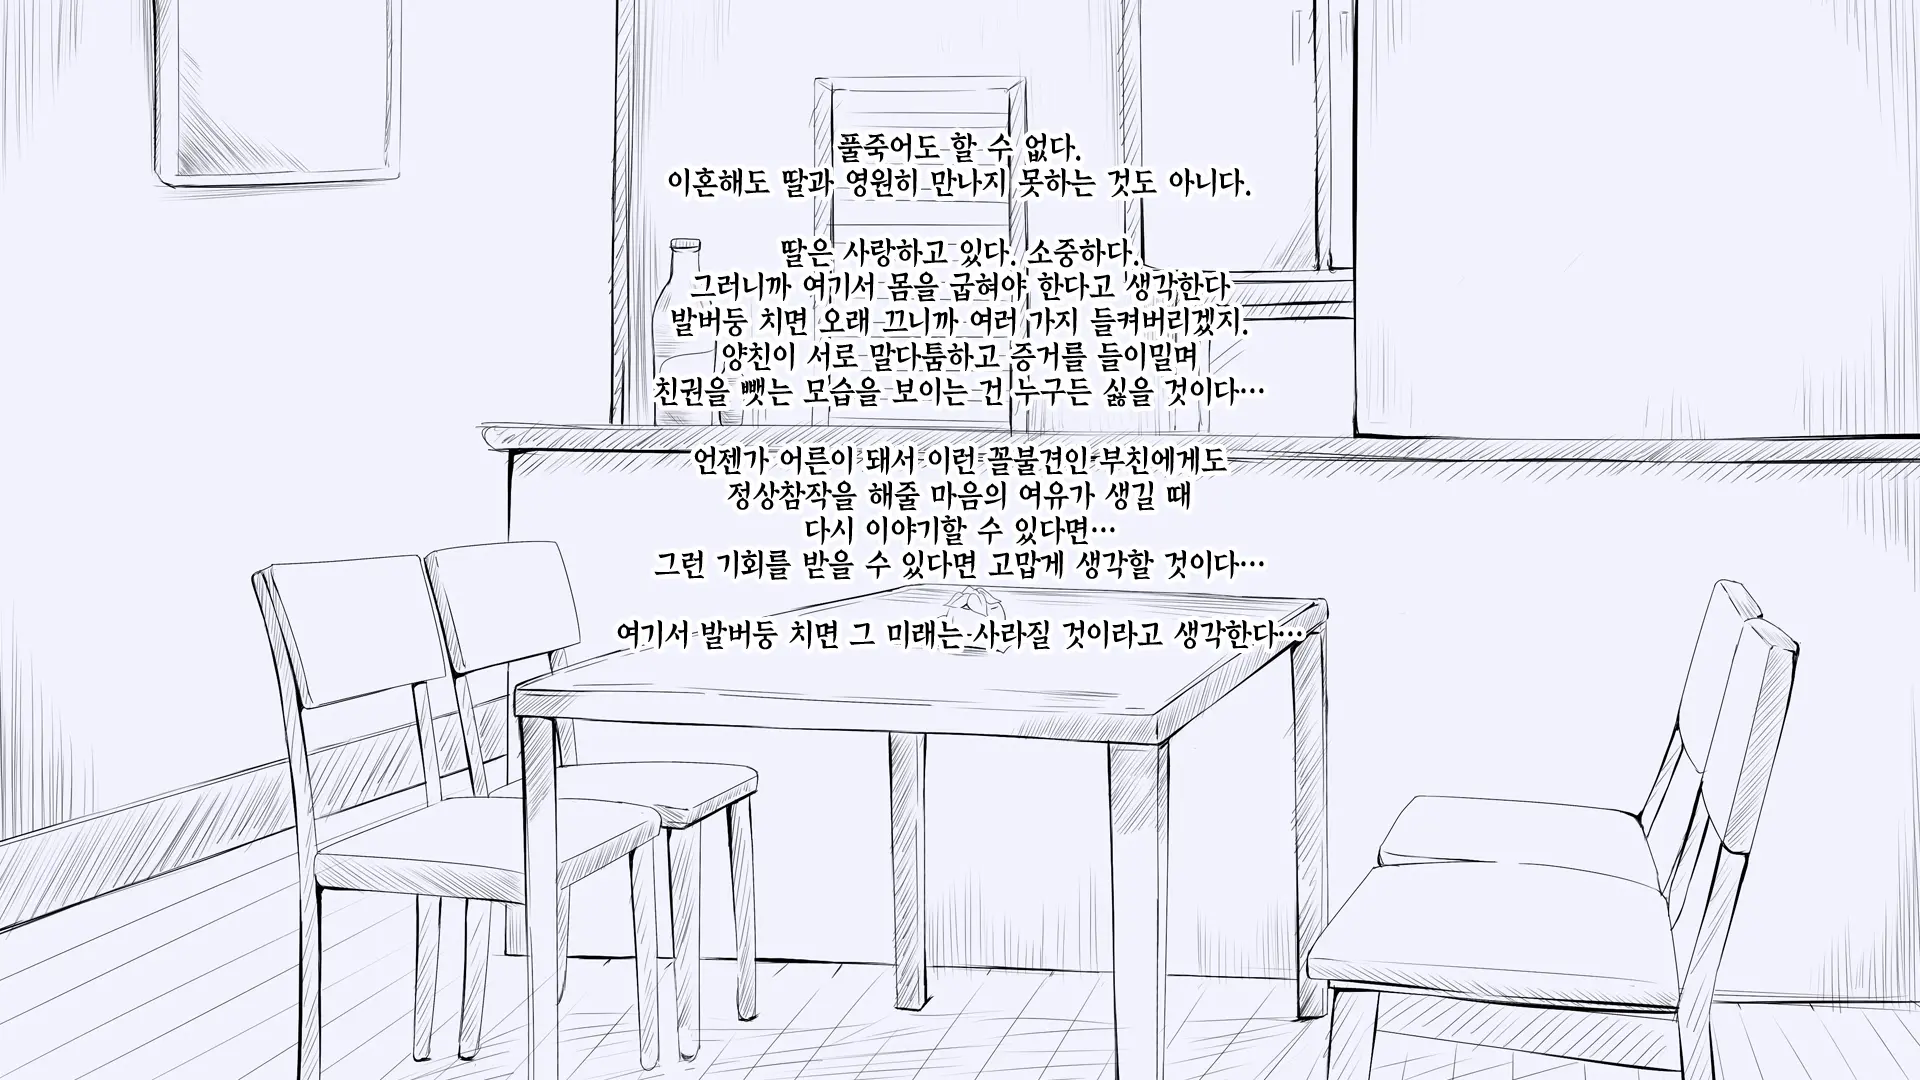 풀죽어도 할 수 없다.
이혼해도 딸과 영원히 만나지 못하는 것도 아니다.
딸은 사랑하고 있다. 소중하다.
그러니까 여기서 몸을 굽혀야 한다고 생각한다
발버둥 치면 오래 끄니까 여러 가지 들켜버리겠지.
양친이 서로 말다툼하고 증거를 들이밀며
친권을 뺏는 모습을 보이는 건 누구든 싫을 것이다…
언젠가 어른이 돼서 이런 꼴불견인 부친에게도
정상참작을 해줄 마음의 여유가 생길 때
다시 이야기할 수 있다면…
그런 기회를 받을 수 있다면 고맙게 생각할 것이다…
여기서 발버둥 치면 그 미래는 사라질 것이라고 생각한다…